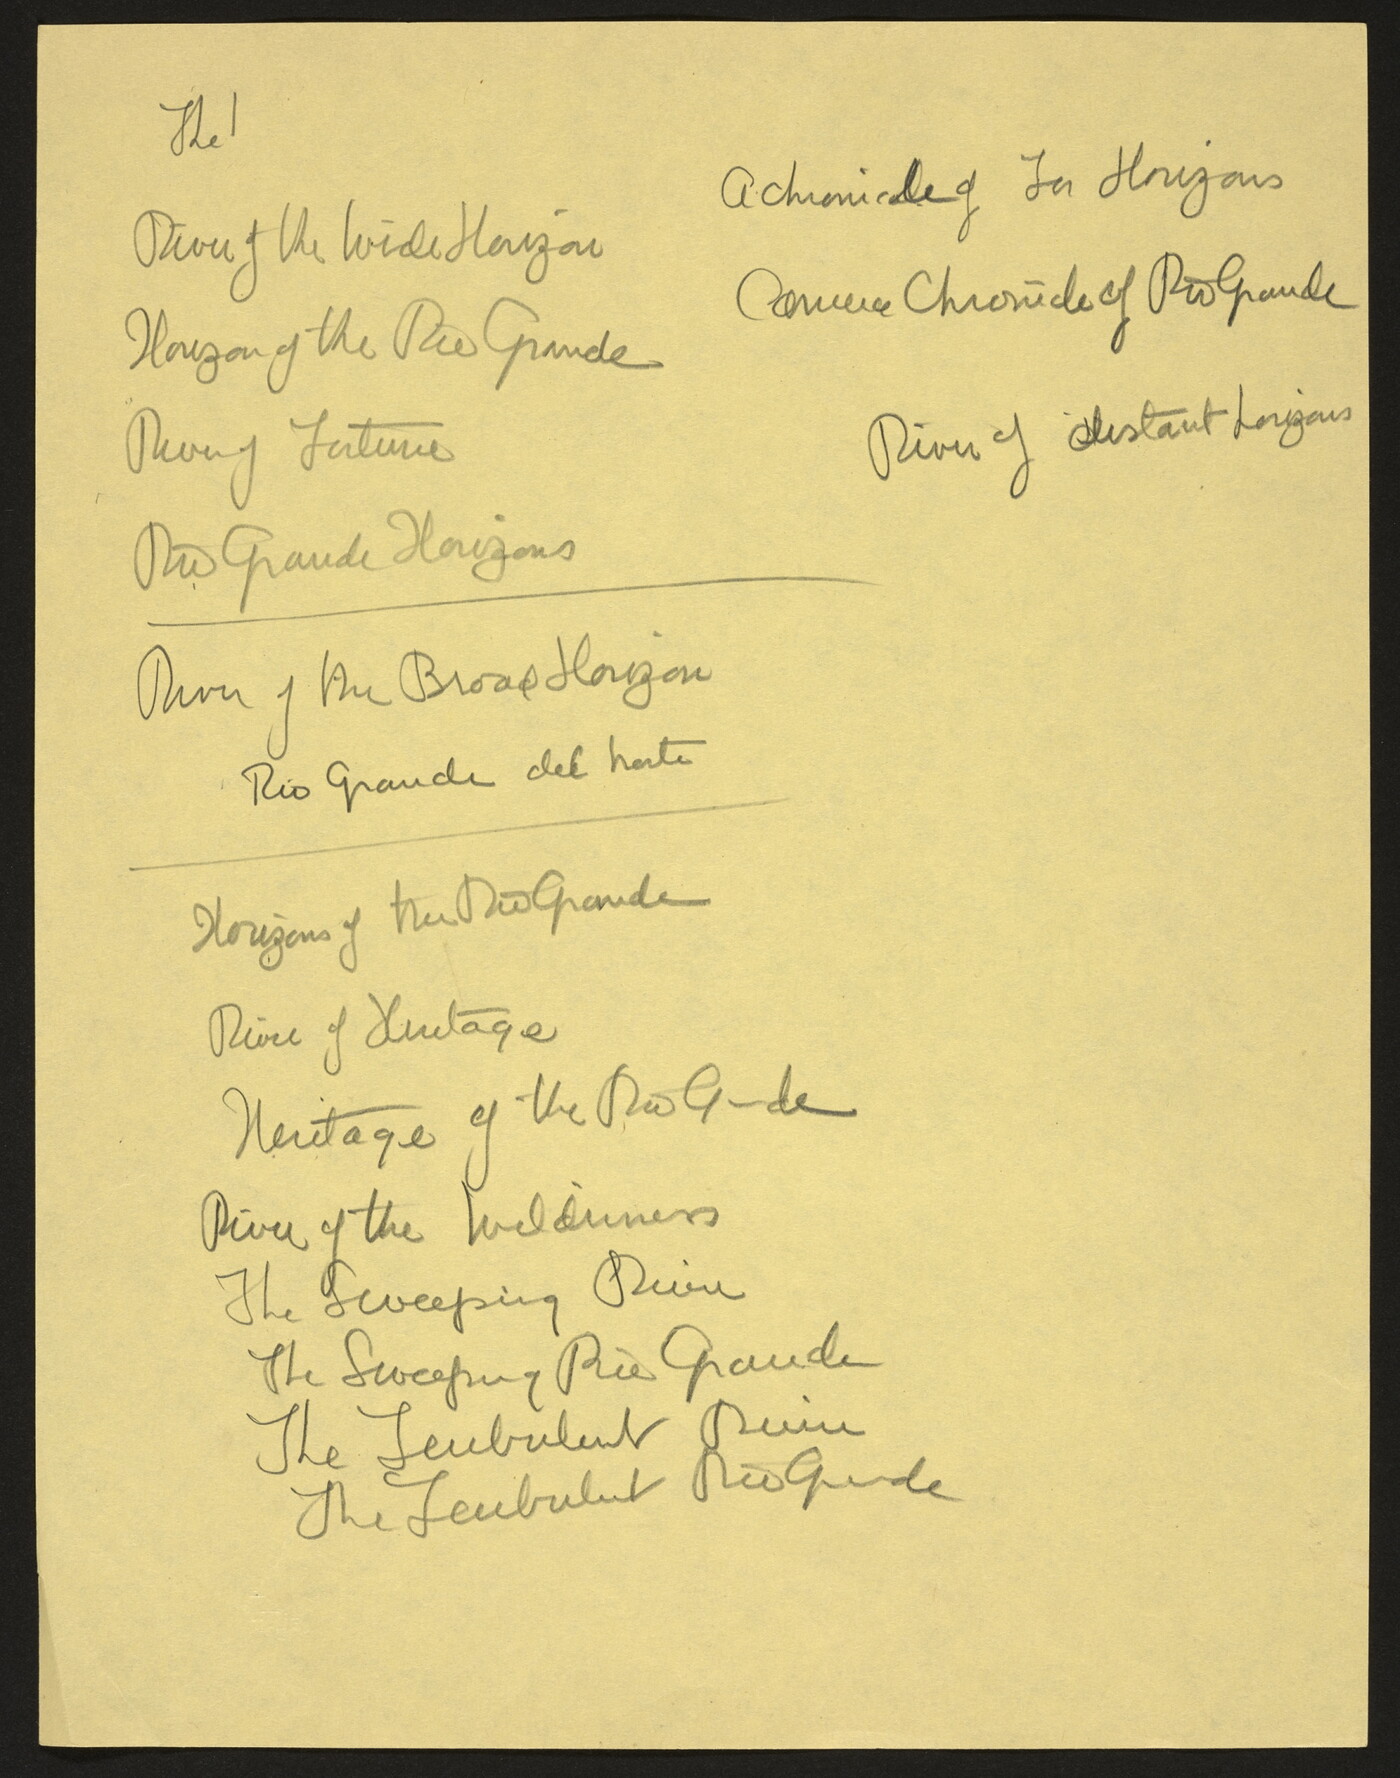 The
River of the Wide Horizon
Horizon of the Rio Grande
River of Fortune
Rio Grande Horizons
River of the Broad Horizon
Rio Grande del Norte
Horizons of the Rio Grande
River of Heritage
Heritage of the Rio G—de
River of the Wilderness
The Sweeping River
The Sweeping Rio Grande
The Turbulent River
The Turbulent Rio Grande
A chronicle of Far Horizons
Camera Chronicle of Rio Grande
River of distant horizons